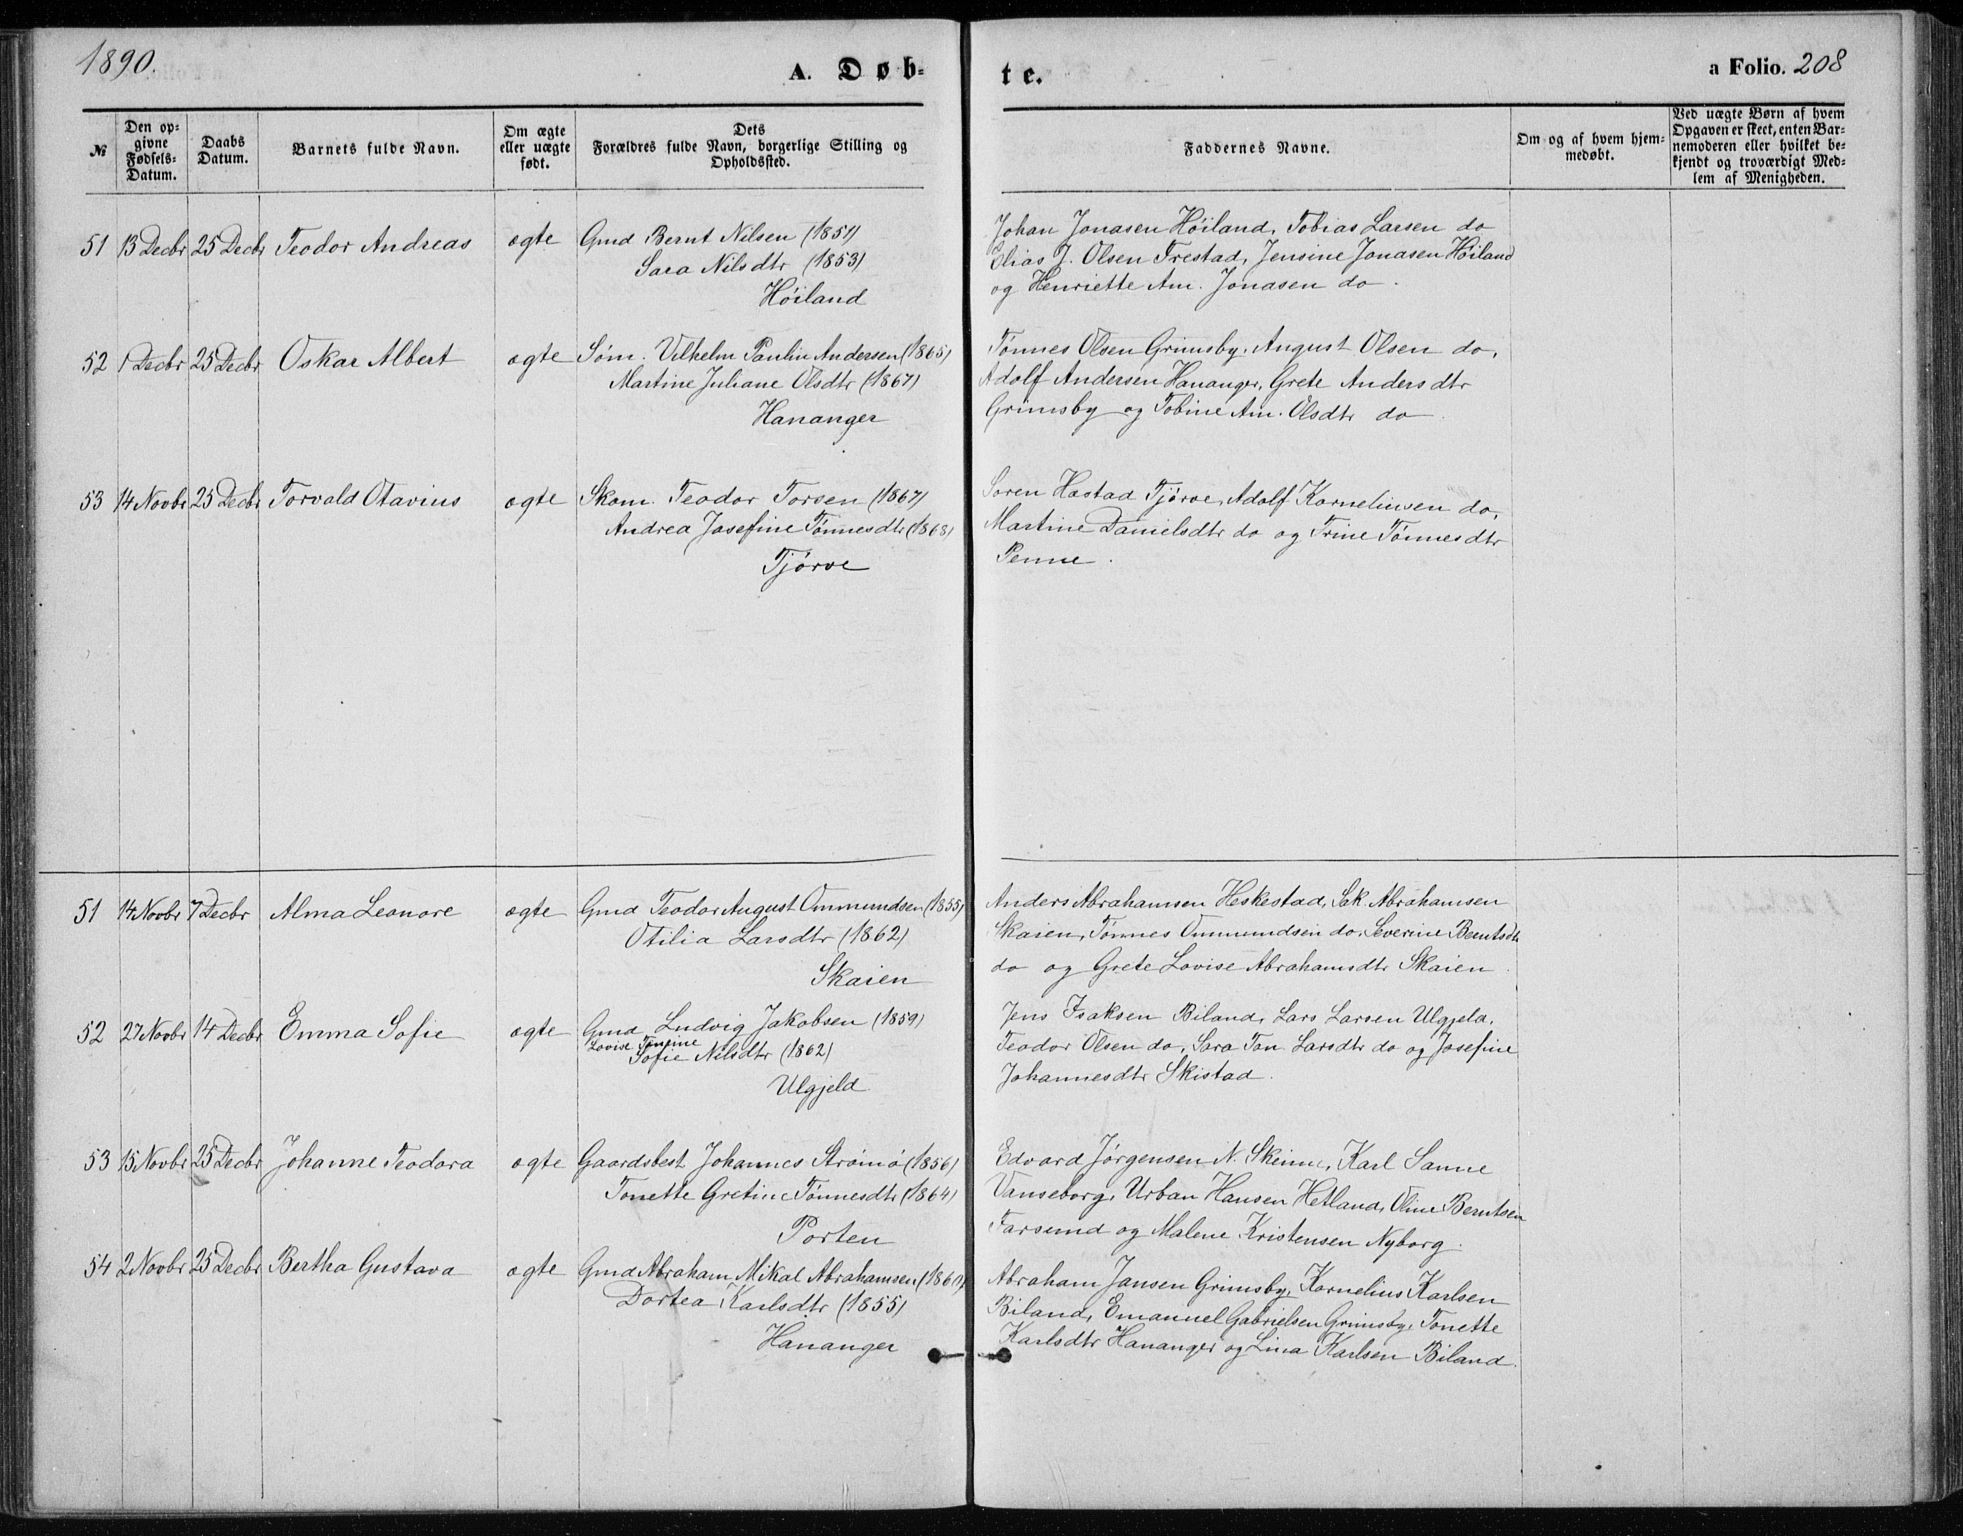 1890.
A. Døb-
te.
a Folio. 208
№
Den op-
givne
Fødsels-
Datum.
Daabs
Datum.
Barnets fulde Navn.
Om ægte
eller uægte
født.
Dets
Forældres fulde Navn, borgerlige Stilling og
Opholdssted.
Faddernes Navne.
Om og af hvem hjem-
medøbt.
Ved uægte Børn af hvem
Opgaven er skeet, enten Bar-
nemoderen eller hvilket be-
kjendt og troværdigt Med-
lem af Menigheden.
51 13 Decbr 25 Decbr Teodor Andreas ægte Gmd Bernt Nilsen (1851)
Sara Nilsdtr (1853)
Høiland
Johan Jonasen Høiland, Tobias Larsen do
Elias J. Olsen Frestad, Jensine Jonasen Høiland
og Henriette Am. Jonasen do.
52 1 Decbr 25 Decbr Oskar Albert ægte Søm. Vilhelm Paulin Andersen (1865)
Martine Juliane Olsdtr (1867)
Hananger
Tønnes Olsen Grimsby, August Olsen do,
Adolf Andersen Hananger, Grete Andersdtr
Grimsby og Tobine Am. Olsdtr do
53 14 Novbr 25 Decbr Torvald Otavius ægte Skom. Teodor Torsen (1867)
Andrea Josefine Tønnesdtr (1868)
Tjørve
Soren Hastad Tjørve, Adolf Korneliusen do,
Martine Danielsdtr do og Trine Tønnesdtr
Penne.
51 14 Novbr 7 Decbr Alma Leonore ægte Gmd Teodor August Ommundsen (1855)
Otilia Larsdtr (1862)
Skaien
Anders Abrahamsen Heskestad, Sak. Abrahamsen
Skaien, Tønnes Ommundsen do, Severine Berntsdtr
do og Grete Lovise Abrahamsdtr Skaien
52 27 Novbr 14 Decbr Emma Sofie ægte Gmd Ludvig Jakobsen (1859)
Lovise
Sofie Nilsdtr (1862)
Ulgjeld
Jens Isaksen Biland, Lars Larsen Ulgjeld,
Teodor Olsen do, Sara Tan Larsdtr do og Josefine
Johannesdtr Skistad.
53 15 Novbr 25 Decbr Johanne Teodora ægte Gaardsbest Johannes Strømø (1856)
Tonette Gretine Tønnesdtr (1864)
Porten
Edvard Jørgensen N. Skeime, Karl Sanne
Vanseborg, Urban Hansen Hetland, Oline Berntsen
Farsund og Malene Kristensen Nyborg.
54 2 Novbr 25 Decbr Bertha Gustava ægte Gmd Abraham Mikal Abrahamsen (1860)
Dortea Karlsdtr (1855)
Hananger
Abraham Jansen Grimsby, Kornelius Karlsen
Biland, Emanuel Gabrielsen Grimsby, Tonette
Karlsdtr Hananger og Lina Karlsen Biland.